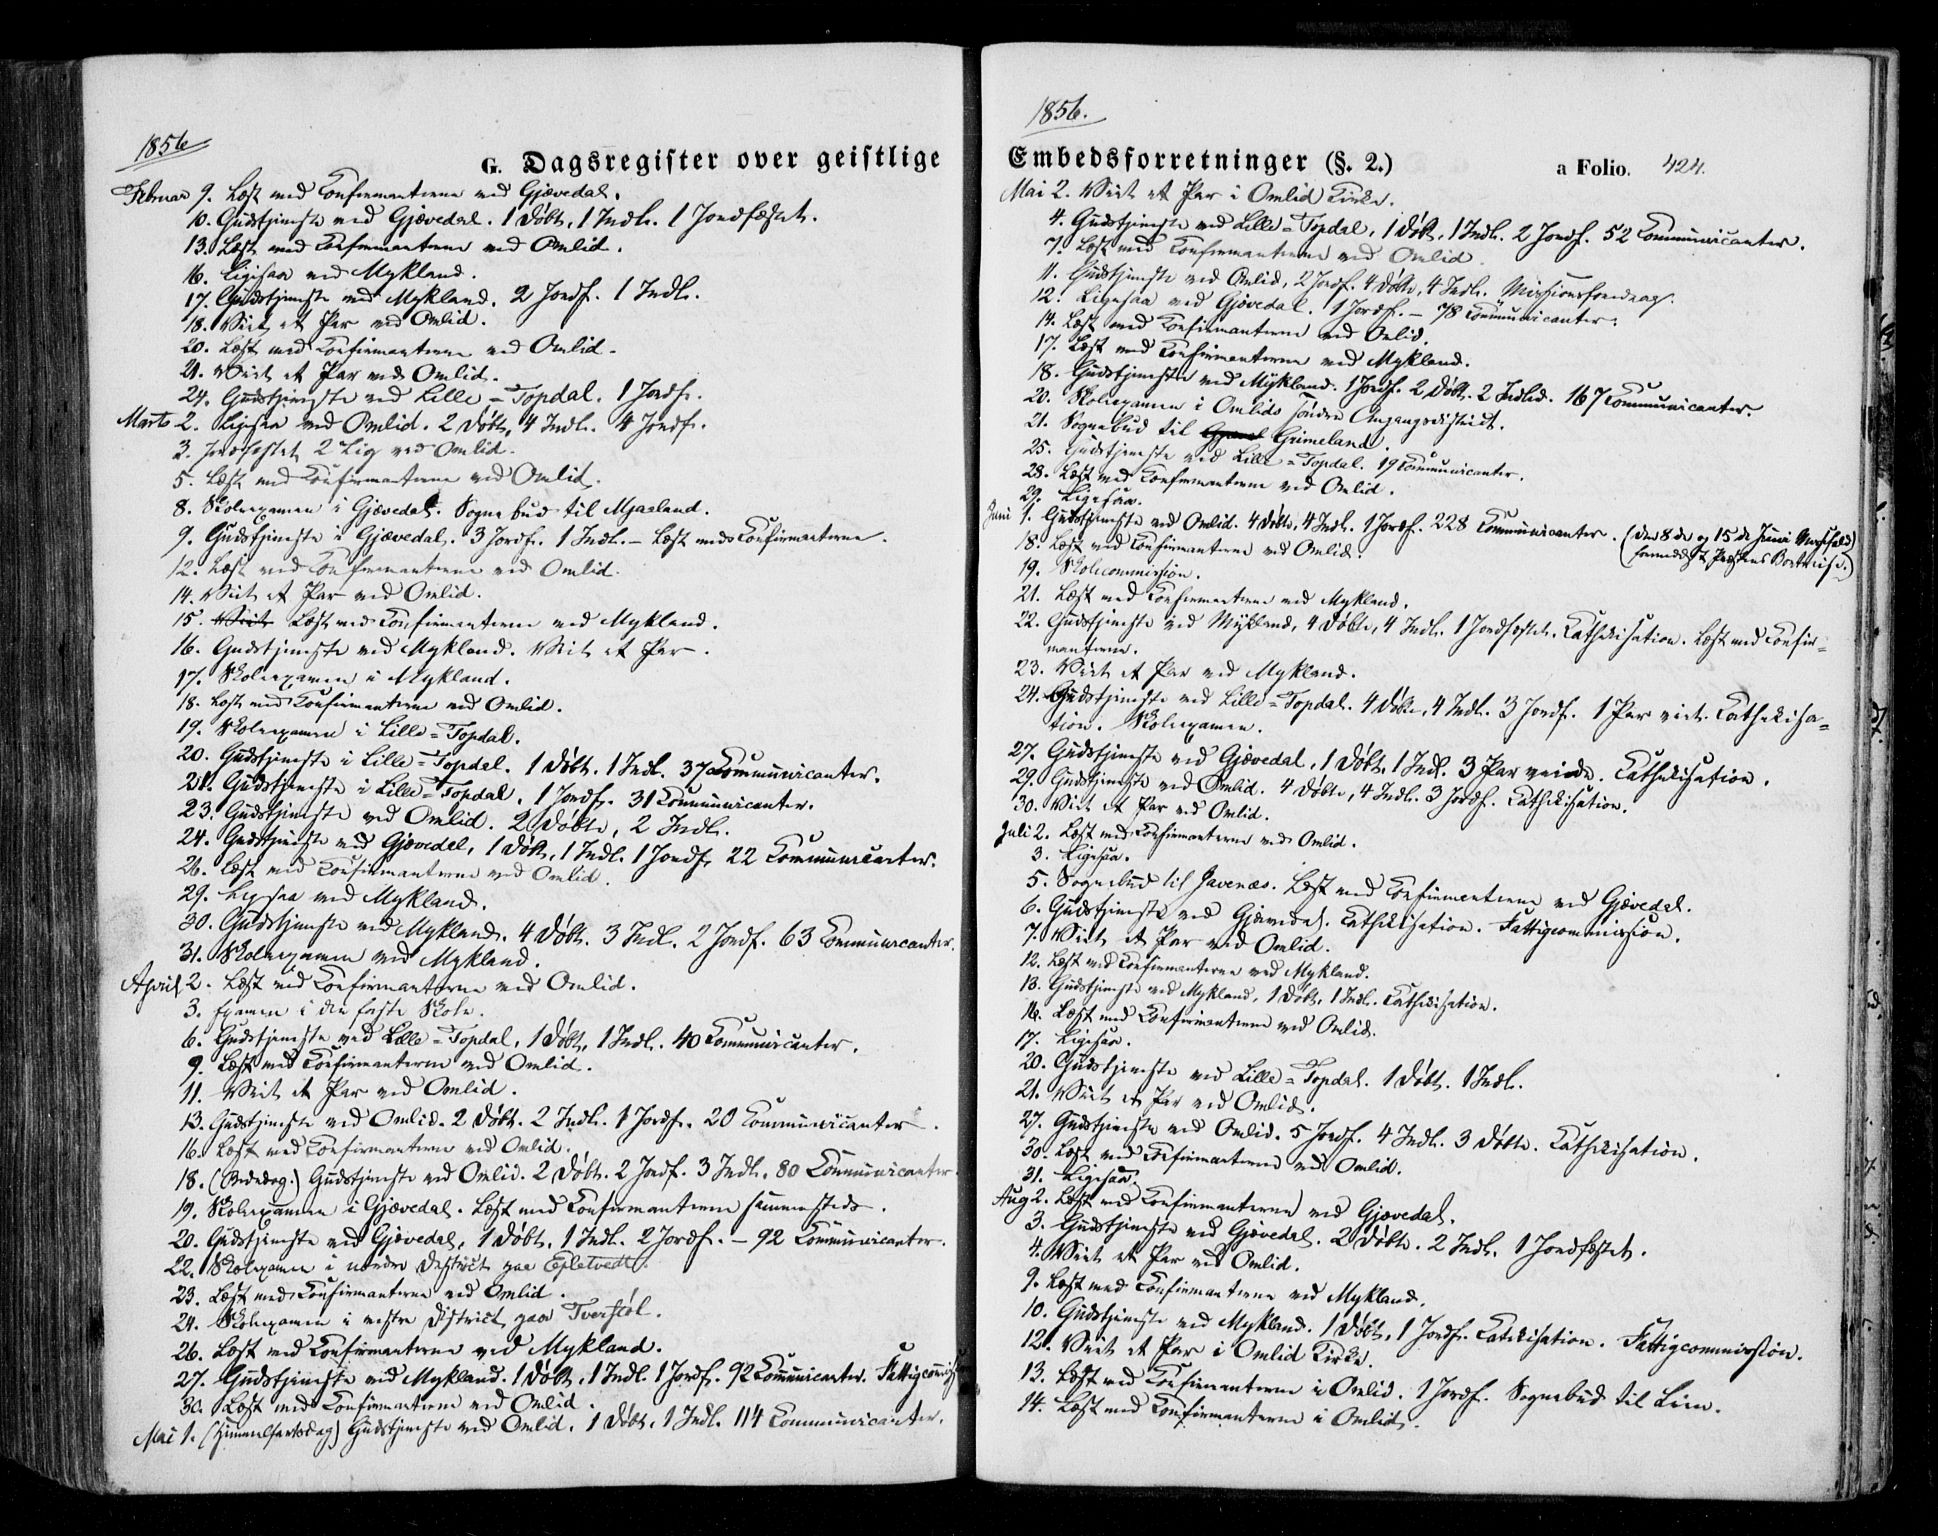 1856
G. Dagsregister over geistlige
Februar 9. Læst med Confirmanterne ved Gjævedal.
10. Gudstjeneste ved Gjævedal. 1 Døbt, 1 Indl. 1 Jordfæstet.
13. Læst med Confirmanterne ved Omlid.
16. Ligesaa ved Mykland.
17. Gudstjeneste ved Mykland. 2 Jordf. 1 Indl.
18. Viet et Par ved Omlid.
20. Læst med Confirmanterne ved Omlid.
21. Viet et Par ved Omlid.
24. Gudstjeneste ved Lille-Topdal. 1 Jordf.
Marts 2. Ligesaa ved Omlid. 2 Døbt, 4 Indl. 4 Jordf.
3. Jordfæstet 2 Lig ved Omlid.
5. Læst med Confirmanterne ved Omlid.
8. Skoleexamen i Gjævedal. Sognebud til Mjaaland.
9. Gudstjeneste i Gjævedal. 3 Jordf. 1 Indl. – Læst med Confirmanterne.
12. Læst med Confirmanterne ved Omlid.
14. Viet et Par ved Omlid.
15. Viet Læst med Confirmanterne ved Mykland.
16. Gudstjeneste ved Mykland. Viet et Par.
17. Skoleexamen i Mykland.
18. Læst med Confirmanterne ved Omlid.
19. Skoleexamen i Lille-Topdal.
20. Gudstjeneste i Lille-Topdal. 1 Døbt. 1 Indl. 37 Communicanter.
21. Gudstjeneste i Lille-Topdal. 1 Jordf. 31 Communicanter.
23. Gudstjeneste ved Omlid. 2 Døbte, 2 Indl.
24. Gudstjeneste ved Gjævedal, 1 Døbt, 1 Indl. 1 Jordf. 22 Communicanter.
26. Læst med Confirmanterne ved Omlid.
29. Ligesaa ved Mykland.
30. Gudstjeneste ved Mykland. 4 Døbt. 3 Indl. 2 Jordf. 63 Communicanter.
31. Skoleexamen ved Mykland.
April 2. Læst med Confirmanterne ved Omlid.
3. Examen i den faste Skole.
6. Gudstjeneste ved Lille-Topdal, 1 Døbt, 1 Indl. 40 Communicanter.
9. Læst med Confirmanterne ved Omlid.
11. Viet et Par ved Omlid.
13. Gudstjeneste ved Omlid. 2 Døbt. 2 Indl. 1 Jordf. 20 Communicanter.
16. Læst med Confirmanterne ved Omlid.
18. (Bededag.) Gudstjeneste ved Omlid. 2 Døbt. 2 Jordf. 3 Indl. 80 Communicanter.
19. Skoleexamen i Gjævedal. Læst med Confirmanterne sammesteds.
20. Gudstjeneste ved Gjævedal, 1 Døbt, 1 Indl. 2 Jordf. – 92 Communicanter.
22. Skoleexamen i nordre District paa Epletvedt.
23. Læst med Confirmanterne ved Omlid.
24. Skoleexamen i vestre District paa Tverstøl.
26. Læst med Confirmanterne ved Mykland.
27. Gudstjeneste ved Mykland. 1 Døbt, 1 Indl. 1 Jordf. 92 Communicanter. Fattigcommiss
30. Læst med Confirmanterne ved Omlid.
Mai 1. (Himmelfartsdag) Gudstjeneste ved Omlid. 1 Døbt, 1 Indl. 114 Communicanter.
1856.
Embedsforretninger (§. 2.) a Folio. 424.
Mai 2. Viet et Par i Omlid Kirke.
4. Gudstjeneste ved Lille-Topdal, 1 Døbt, 1 Indl. 2 Jordf. 52 Communicanter.
7. Læst med Confirmanterne ved Omlid.
11. Gudstjeneste ved Omlid, 2 Jordf. 4 Døbte, 4 Indl. Missionsforedrag.
12. Ligesaa ved Gjævedal. 1 Jordf. – 78 Communicanter.
14. Læst med Confirmanterne ved Omlid.
17. Læst med Confirmanterne ved Mykland.
18. Gudstjeneste ved Mykland. 1 Jordf. 2 Døbt. 2 Indled. 167 Communicanter.
20. Skoleexamen i Omlids søndre Omgangsdistrict.
21. Sognebud til Grimeland.
25. Gudstjeneste ved Lille-Topdal. 19 Communicanter.
28. Læst med Confirmanterne ved Omlid.
29. Ligesaa.
Juni 1. Gudstjeneste ved Omlid. 4 Døbte, 4 Indl. 1 Jordf. 228 Communicanter. (Den 8de og 15de Juni Messefald
formedelst Præstens Bortreise.)
18. Læst med Confirmanterne ved Omlid.
19. Skolecommission.
21. Læst med Confirmanterne ved Mykland.
22. Gudstjeneste ved Mykland, 4 Døbte, 4 Indl. 1 Jordfæstet. Cathekisation. Læst med Confir-
manterne.
23. Viet et Par ved Mykland.
24. Gudstjeneste ved Lille-Topdal. 4 Døbte, 4 Indl. 3 Jordf. 1 Par viet. Cathekisa-
tion. Skoleexamen.
27. Gudstjeneste ved Gjævedal, 1 Døbt, 1 Indl. 3 Par viede. Cathekisation.
29. Gudstjeneste ved Omlid. 4 Døbte, 4 Indl. 3 Jordf. Cathekisation.
30. Viet et Par ved Omlid.
Juli 2. Læst med Confirmanterne ved Omlid.
3. Ligesaa.
5. Sognebud til Javenæs. Læst med Confirmanterne ved Gjævedal.
6. Gudstjeneste ved Gjævedal. Cathekisation. Fattigcommission.
7. Viet et Par ved Omlid.
12. Læst med Confirmanterne ved Mykland.
13. Gudstjeneste ved Mykland, 1 Døbt, 1 Indl. Cathekisation.
16. Læst med Confirmanterne ved Omlid.
17. Ligesaa.
20. Gudstjeneste ved Lille-Topdal. 1 Døbt. 1 Indl.
21. Viet et Par ved Omlid.
27. Gudstjeneste ved Omlid. 5 Jordf. 4 Indl. 3 Døbte. Cathekisation.
30. Læst med Confirmanterne ved Omlid.
31. Ligesaa.
Aug 2. Læst med Confirmanterne ved Gjævedal.
3. Gudstjeneste ved Gjævedal. 2 Døbte. 2 Indl. 1 Jordfæstet.
4. Viet et Par ved Omlid.
9. Læst med Confirmanterne ved Mykland.
10. Gudstjeneste ved Mykland. 1 Døbt, 1 Jordf. Catekisation. Fattigcommission.
12. Viet et Par i Omlid Kirke.
13. Læst med Confirmanterne i Omlid. 1 Jordf. Sognebud til Lien.
14. Læst med Confirmanterne i Omlid.